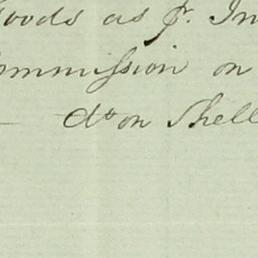 Goods as pr. In
ommission on
— do on Shell